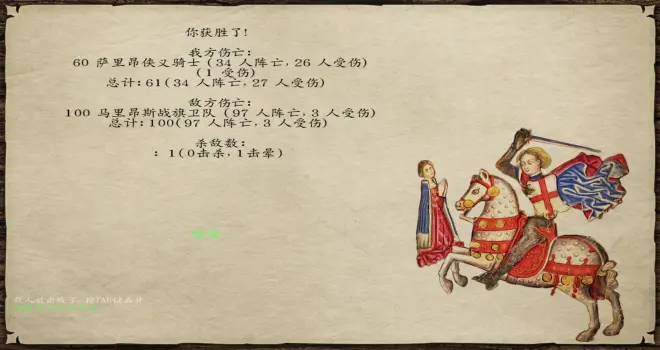 你获胜了!
我方伤亡:
60 萨里昂侠义骑士 (34 人阵亡, 26 人受伤)
(1 受伤)
总计: 61(34 人阵亡, 27 人受伤)
敌方伤亡:
100 马里昂斯战旗卫队 (97 人阵亡, 3 人受伤)
总计: 100(97 人阵亡, 3 人受伤)
杀敌数:
: 1(0击杀, 1击晕)